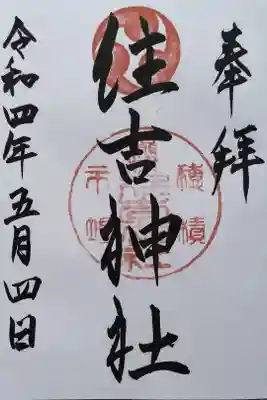 奉拝
住吉神社
令和四年五月四日